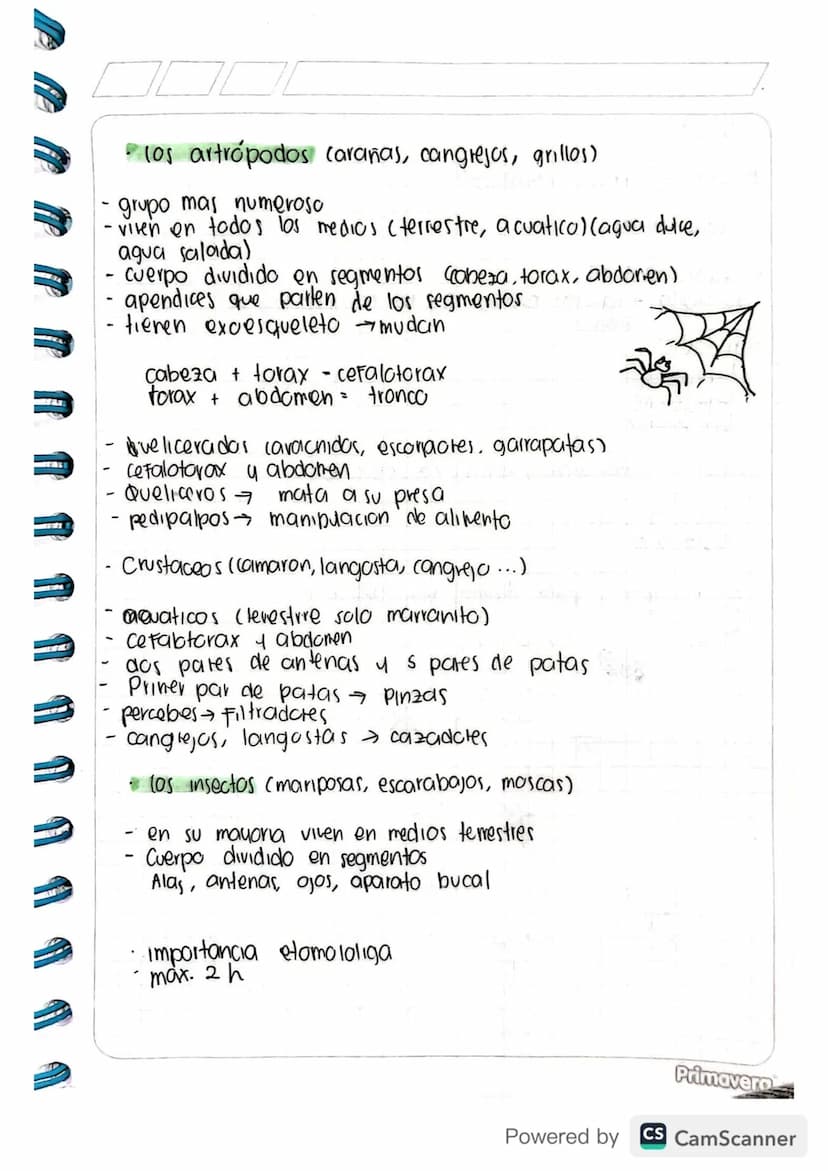 · los artrópodos (arañas, cangrejos, grillos)
- grupo mas numeroso
- viven en todos los medios (terrestre, acuatico)(agua dulce,
agua salada)
- cuerpo dividido en segmentos (cabeza, torax, abdomen)
- apendices que parten de los segmentos
- tienen exoesqueleto → mudan
cabeza + torax - cefalotorax
torax + abdomen = tronco
- quelicerados (aracnidos, escorpiones, garrapatas)
- cefalotorax y abdomen
- Queliceros → mata a su presa
- pedipalpos → manipulacion de alimento
- Crustaceos (camaron, langosta, cangrejo ...)
- acuaticos (terrestre solo marranito)
- cefalotorax y abdomen
- dos pares de antenas y 5 pares de patas
- Primer par de patas → pinzas
- percebes → filtradores
- cangrejos, langostas → cazadores
· los insectos (mariposas, escarabajos, moscas)
- en su mayoria viven en medios terrestres
- Cuerpo dividido en segmentos
Alas, antenas, ojos, aparato bucal
· importancia etomololiga
· max. 2 h
Primavera
Powered by CS CamScanner